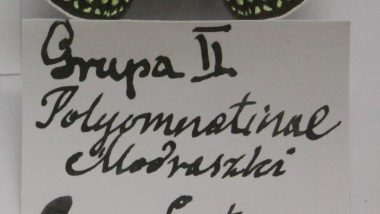 Grupa II
Polyommatinae
Modraszki